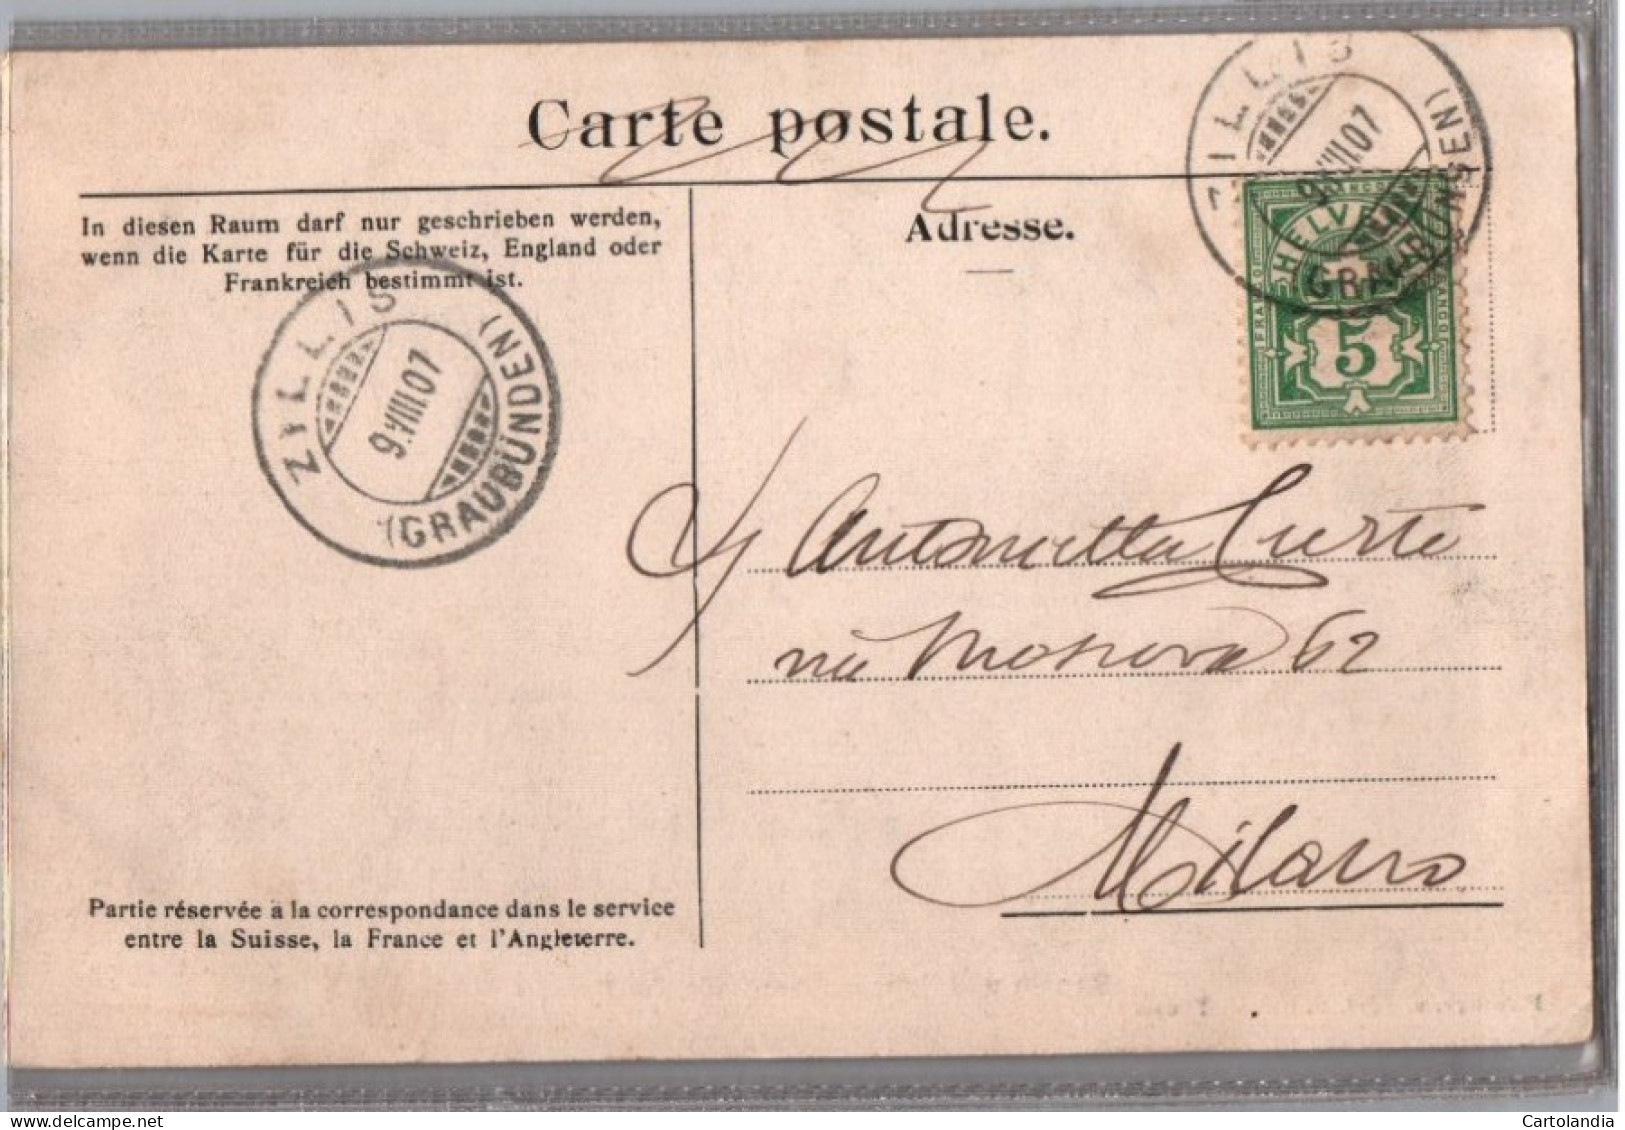 Carte postale.
In diesen Raum darf nur geschrieben werden,
wenn die Karte für die Schweiz, England oder
Frankreich bestimmt ist.
Adresse.
ZILLIS
9.VIII.07
(GRAUBÜNDEN)
ZILLIS
9.VIII.07
(GRAUBÜNDEN)
HELVETIA
FRANCO
5
Antonietta Curti
via Moscova 62
Milano
Partie réservée à la correspondance dans le service
entre la Suisse, la France et l'Angleterre.
Cartolandia